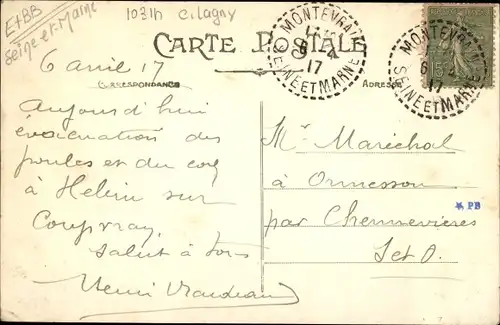 E×BB
Seine-et-Marne
1031h Cilagny
CARTE POSTALE
MONTEVRAIN
6 -4
17
SEINE ET MARNE
MONTEVRAIN
6 -4
17
SEINE ET MARNE
15
6 avril 17
CORRESPONDANCE
ADRESSE
Aujourd'hui
évacuation des
poules et du coq
à Helein sur
Coupvray.
Salut à tous
Henri
Mr Maréchal
à Ormesson
par Chennevières
S et O.
PB